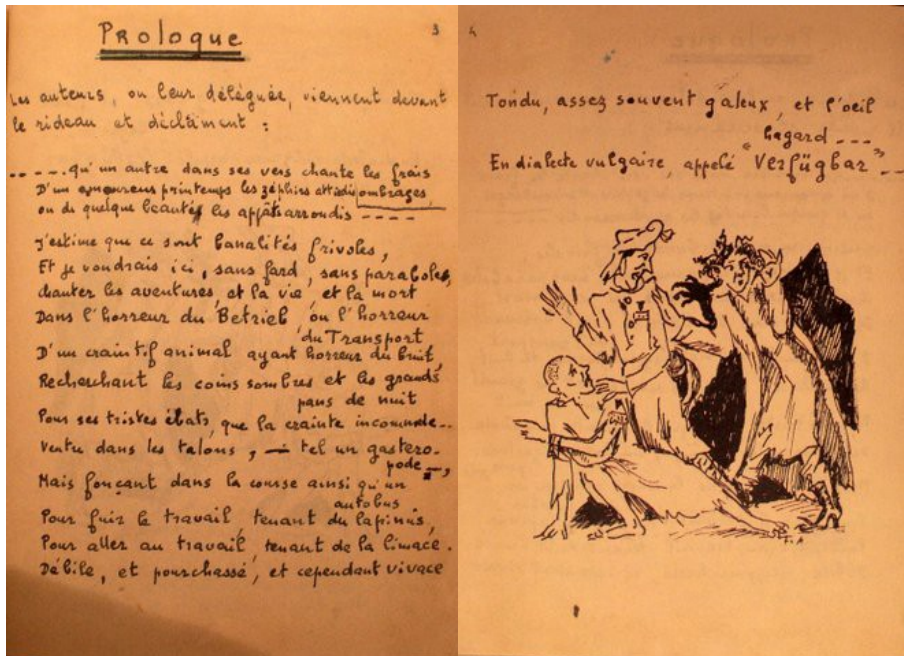 Prologue
3
Les auteurs, ou leur déléguée, viennent devant
le rideau et déclament :
-----. qu'un autre dans ses vers chante les frais
ombrages,
D'un amoureux printemps les zéphirs attiédis
ou de quelque beautés les appâts arrondis ----
J'estime que ce sont banalités frivoles,
Et je voudrais ici, sans fard, sans paraboles,
chanter les aventures, et la vie, et la mort
Dans l'horreur du Betrieb, ou l'horreur
du Transport
D'un craintif animal ayant horreur du bruit,
Recherchant les coins sombres et les grands
pans de nuit
Pour ses tristes ébats, que la crainte incommode..
Ventre dans les talons, — tel un gastero-
pode —,
Mais fonçant dans la course ainsi qu'un
autobus
Pour fuir le travail, tenant du lapinus,
Pour aller au travail, tenant de la limace.
Débile, et pourchassé, et cependant vivace
4
Tondu, assez souvent galeux, et l'oeil
hagard ---
En dialecte vulgaire, appelé "Verfügbar" --
F.A